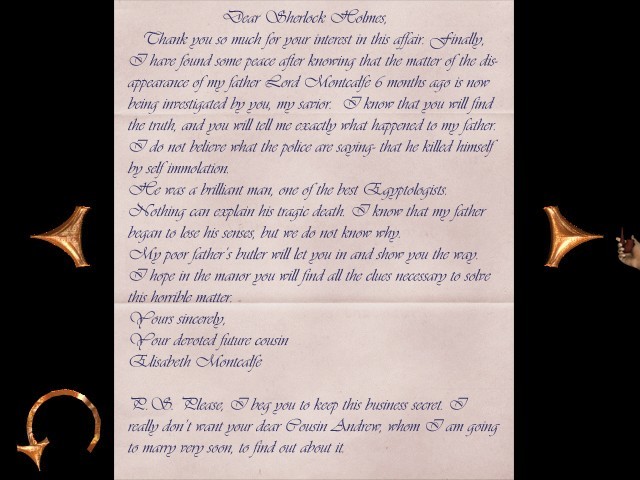 Dear Sherlock Holmes,
Thank you so much for your interest in this affair. Finally,
I have found some peace after knowing that the matter of the dis-
appearance of my father Lord Montcalfe 6 months ago is now
being investigated by you, my savior. I know that you will find
the truth, and you will tell me exactly what happened to my father.
I do not believe what the police are saying- that he killed himself
by self immolation.
He was a brilliant man, one of the best Egyptologists.
Nothing can explain his tragic death. I know that my father
began to lose his senses, but we do not know why.
My poor father's butler will let you in and show you the way.
I hope in the manor you will find all the clues necessary to solve
this horrible matter.
Yours sincerely,
Your devoted future cousin
Elisabeth Montcalfe
P.S. Please, I beg you to keep this business secret. I
really don't want your dear Cousin Andrew, whom I am going
to marry very soon, to find out about it.